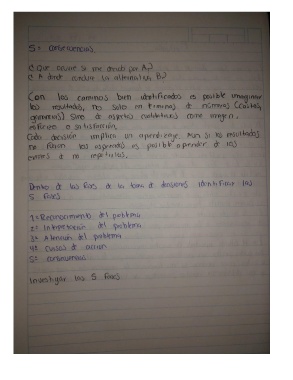 5= consecuencias.
¿Que ocurre si me decido por A?
¿ A donde conduce la alternativa B?
Con los caminos bien identificados es posible imaginar
los resultados, no solo en terminos de numeros (costos,
ganancias) sino de aspectos cualitativos como
esfuerzo o satisfacción.
Cada decisión implica un aprendizaje. Aun si los resultados
no fueron los esperados es posible aprender de los
errores al no repetirlos.
Dentro de las fases de la toma de decisiones identificar las
5 fases
1= Reconocimiento del problema
2= Interpretación del problema
3= Atención del problema
4= cursos de acción
5= consecuencias
Investigar las 5 fases